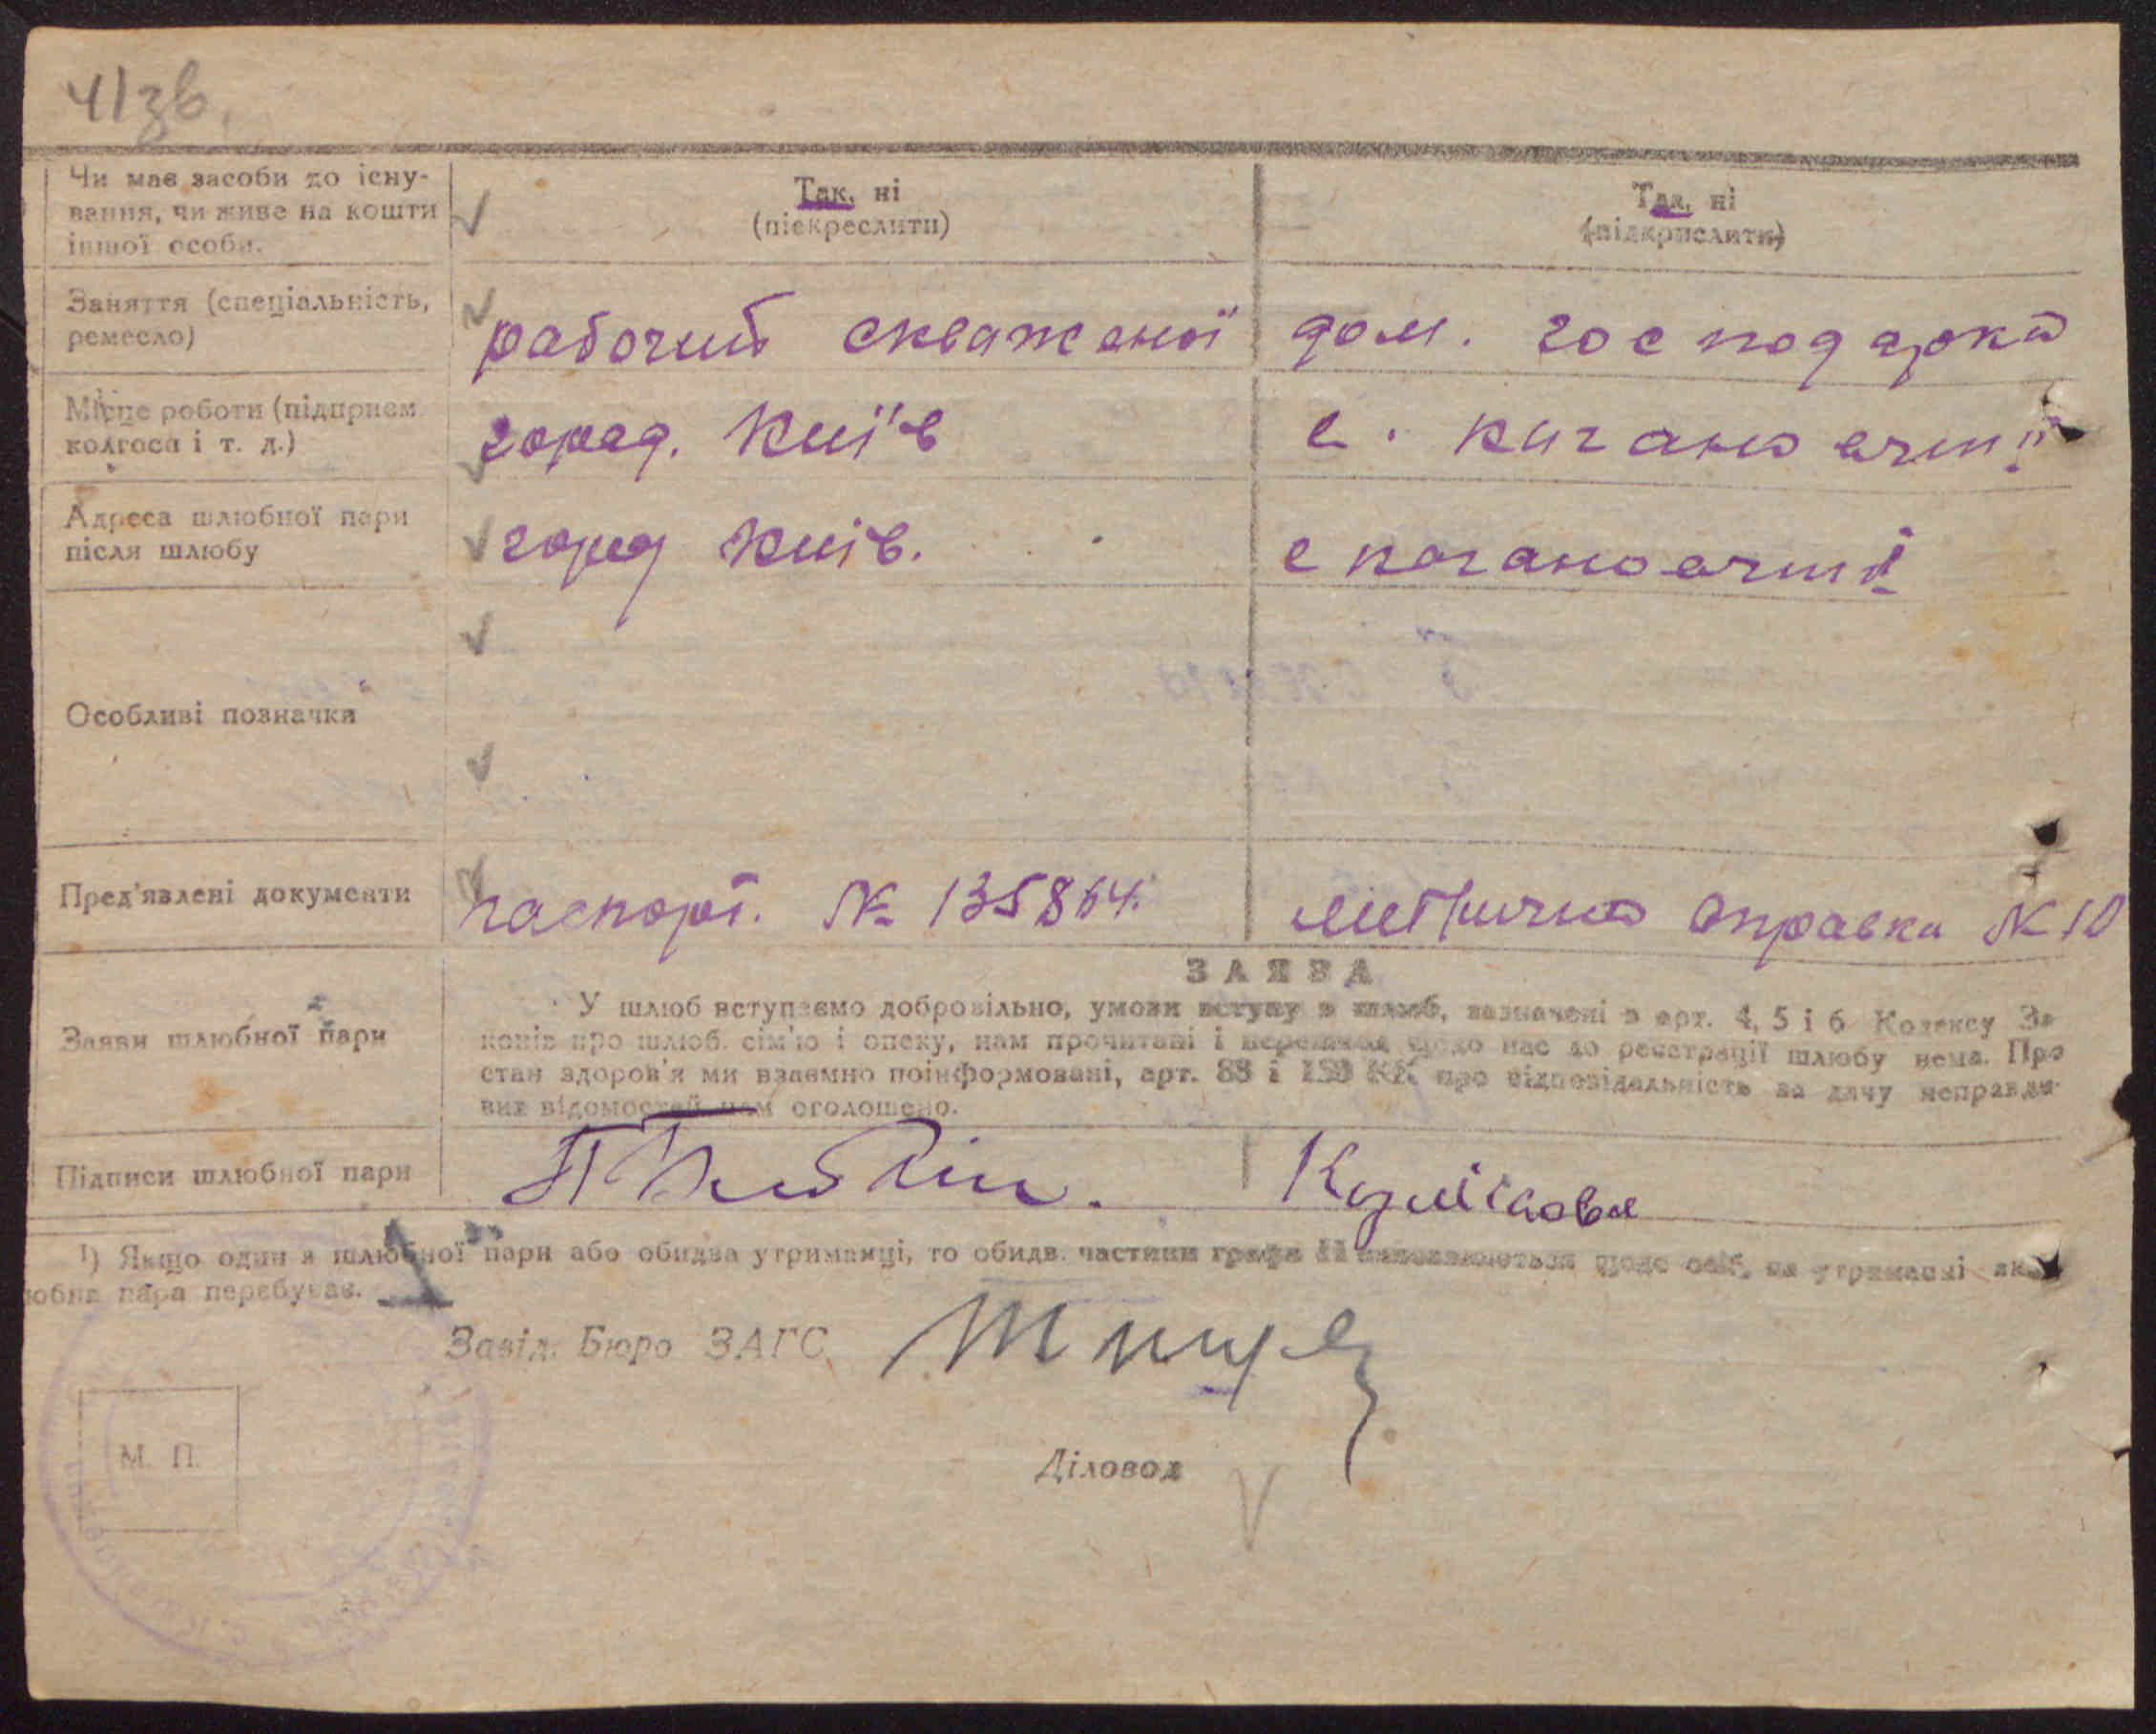 41зв.
Чи має засоби до існу-
вання, чи живе на кошти
іншої особи.
Так, ні
(піекреслити)
Так, ні
(підкрислити)
Заняття (спеціальність,
ремесло)
рабочий скважаної
дом. господарка
Місце роботи (підприєм
колгоса і т. д.)
город. Київ
с. кагановичи
Адреса шлюбної пари
після шлюбу
город Київ.
с кагановичі
Особливі позначки
Пред'явлені документи
паспорт. № 135864.
метрична справка № 10
ЗАЯВА
Заяви шлюбної пари
У шлюб вступаємо добровільно, умови вступу в шлюб, зазначені в арт. 4, 5 і 6 Кодексу За
конів про шлюб. сім'ю і опеку, нам прочитані і перешкод щодо нас до реєстрації шлюбу нема. Про
стан здоров'я ми взаємно поінформовані, арт. 88 і КК про відповідальність за дачу неправди-
вих відомостей нам оголошено.
Підписи шлюбної пари
1) Якщо один я шлюбної пари або обидва утриманці, то обидв. частини графи 11 щодо осіб, на утриманні як
юбна пара перебуває.
Завід. Бюро ЗАГС
М. П.
Діловод